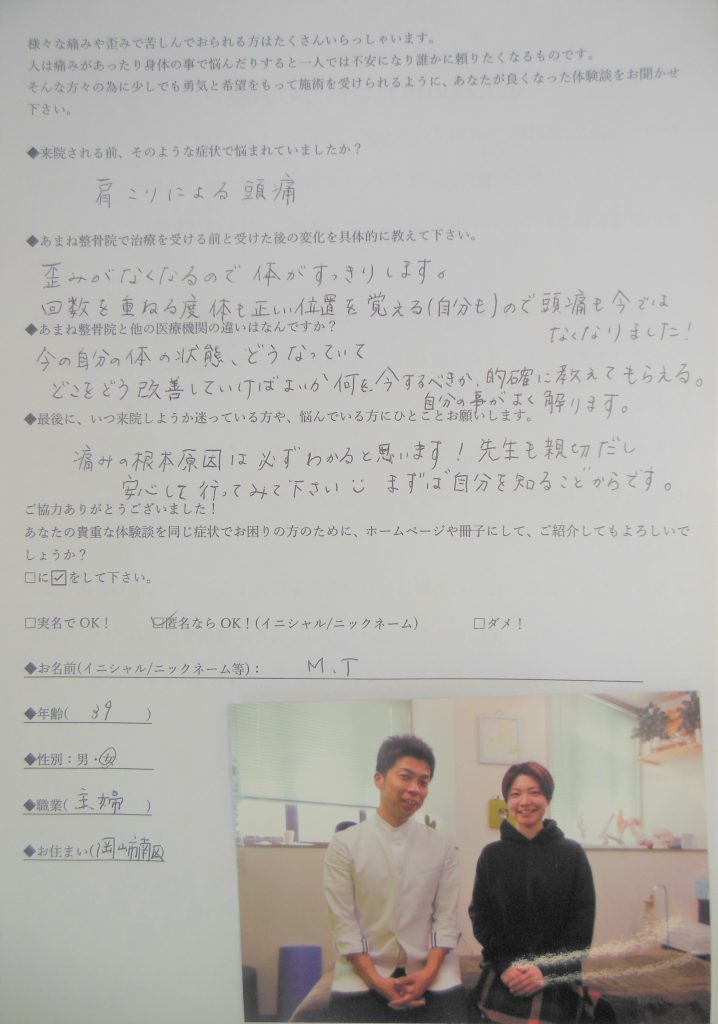 様々な痛みや歪みで苦しんでおられる方はたくさんいらっしゃいます。
人は痛みがあったり身体の事で悩んだりすると一人では不安になり誰かに頼りたくなるものです。
そんな方々の為に少しでも勇気と希望をもって施術を受けられるように、あなたが良くなった体験談をお聞かせ
下さい。
◆来院される前、そのような症状で悩まれていましたか？
肩こりによる頭痛
◆あまね整骨院で治療を受ける前と受けた後の変化を具体的に教えて下さい。
歪みがなくなるので体がすっきりします。
回数を重ねる度体も正しい位置を覚える(自分も)ので頭痛も今では
なくなりました!
◆あまね整骨院と他の医療機関の違いはなんですか？
今の自分の体の状態、どうなっていて
どこをどう改善していけばよいか何を今するべきか、的確に教えてもらえる。
自分の事がよく解ります。
◆最後に、いつ来院しようか迷っている方や、悩んでいる方にひとことお願いします。
痛みの根本原因は必ずわかると思います！先生も親切だし
安心して行ってみて下さい まずは自分を知ることからです。
ご協力ありがとうございました！
あなたの貴重な体験談を同じ症状でお困りの方のために、ホームページや冊子にして、ご紹介してもよろしいで
しょうか？
□に☑をして下さい。
□実名で OK！ ☑匿名なら OK！(イニシャル/ニックネーム) □ダメ！
◆お名前(イニシャル/ニックネーム等)： M.T
◆年齢( 39 )
◆性別：男・女
◆職業( 主婦 )
◆お住まい(岡山市南区)